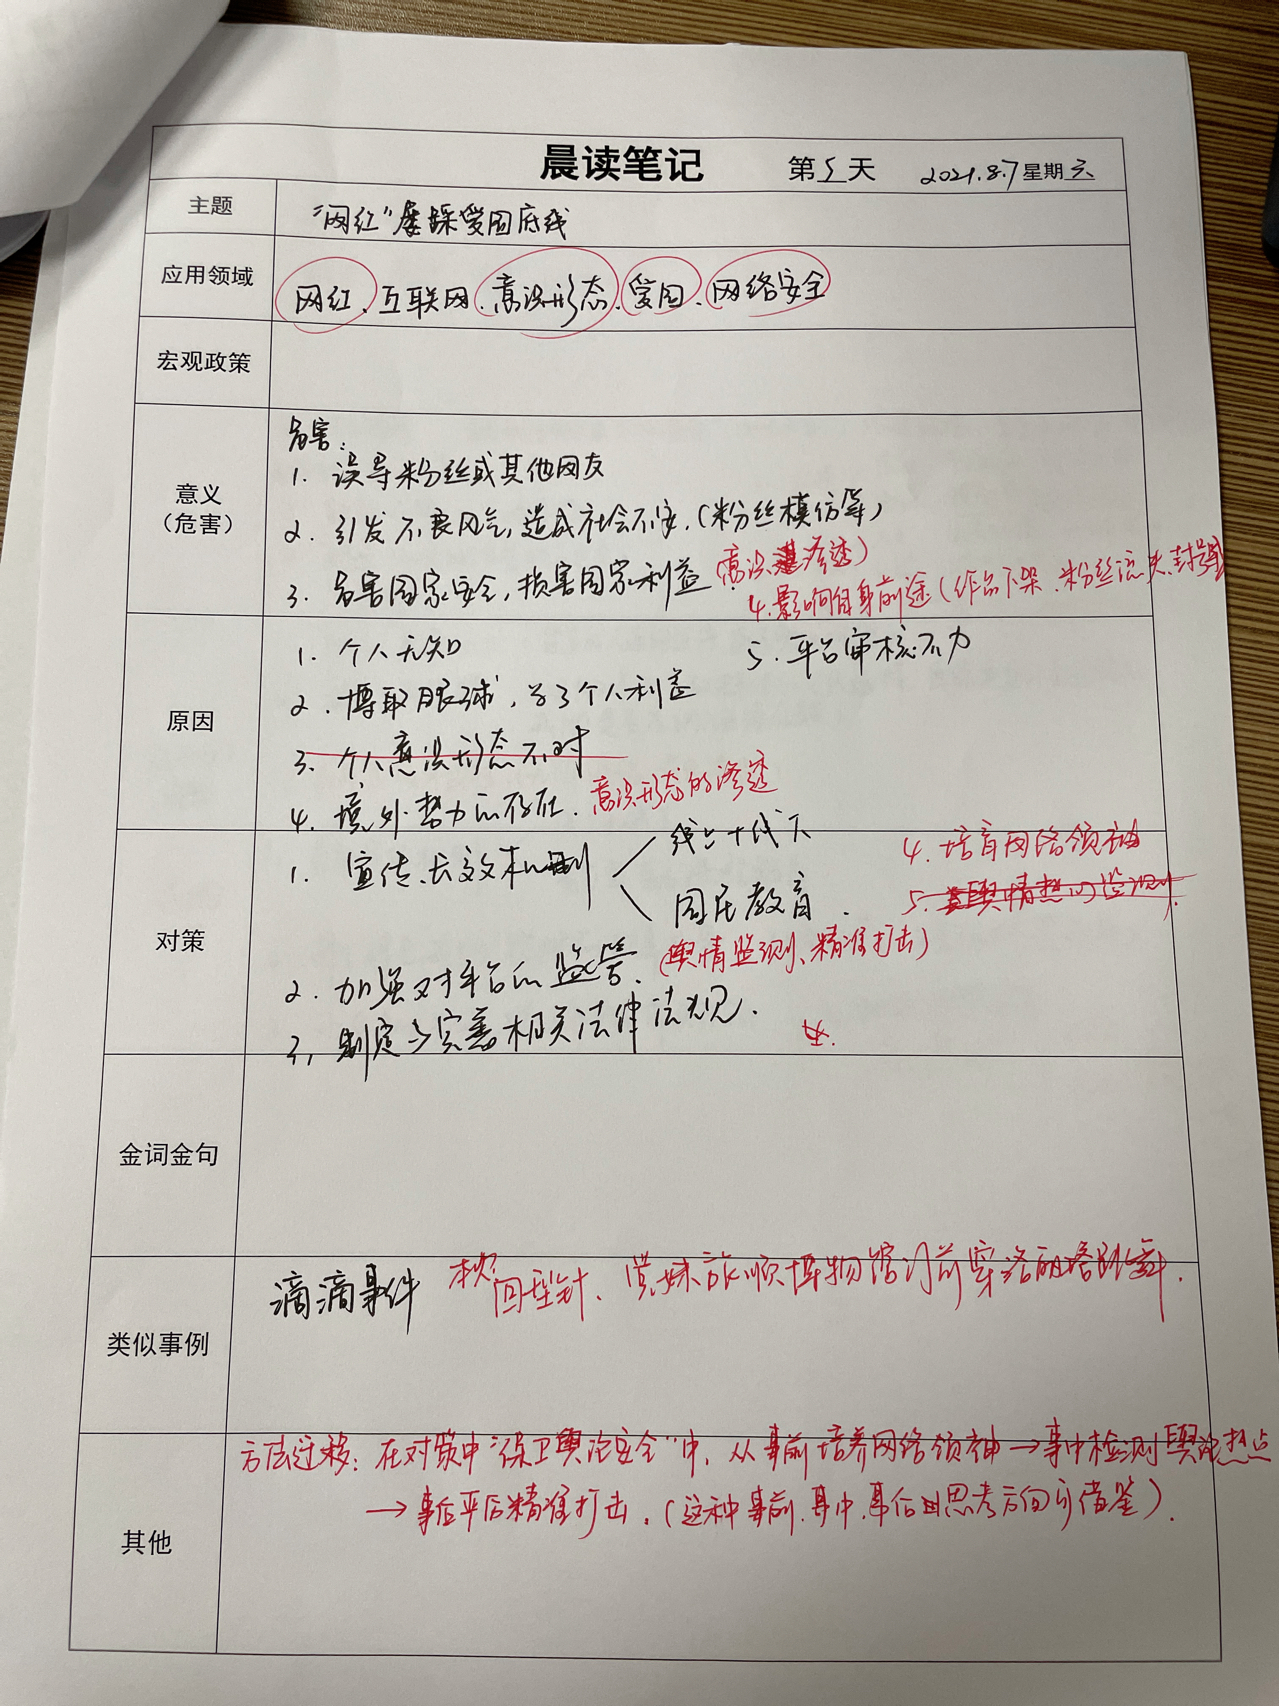 晨读笔记 第5天 2021.8.7 星期六
主题 “网红”屡踩爱国底线
应用领域 网红、互联网、意识形态、爱国、网络安全
宏观政策
意义
（危害）
危害：
1. 误导粉丝或其他网友
2. 引发不良风气，造成社会不安.（粉丝模仿等）
3. 危害国家安全，损害国家利益（意识渗透）
4.影响自身前途（作品下架、粉丝流失、封号
原因
1. 个人无知
5. 平台审核不力
2. 博取眼球，为了个人利益
3. 个人意识形态不对
4. 境外势力的存在. 意识形态的渗透
对策
1. 宣传、长效机制
线上+线下
国民教育.
4. 培育网络领袖
5. 舆情热点监测.
2. 加强对平台的监管.（舆情监测、精准打击）
3. 制定与完善相关法律法规.
4.
金词金句
类似事例
滴滴事件 回型针、 旅顺博物馆门前穿洛丽塔
其他
方法迁移：在对策中“保卫舆论安全”中，从事前培养网络领袖→事中检测舆论热点
→事后平台精准打击.（这种事前、事中、事后的思考方向可借鉴）.